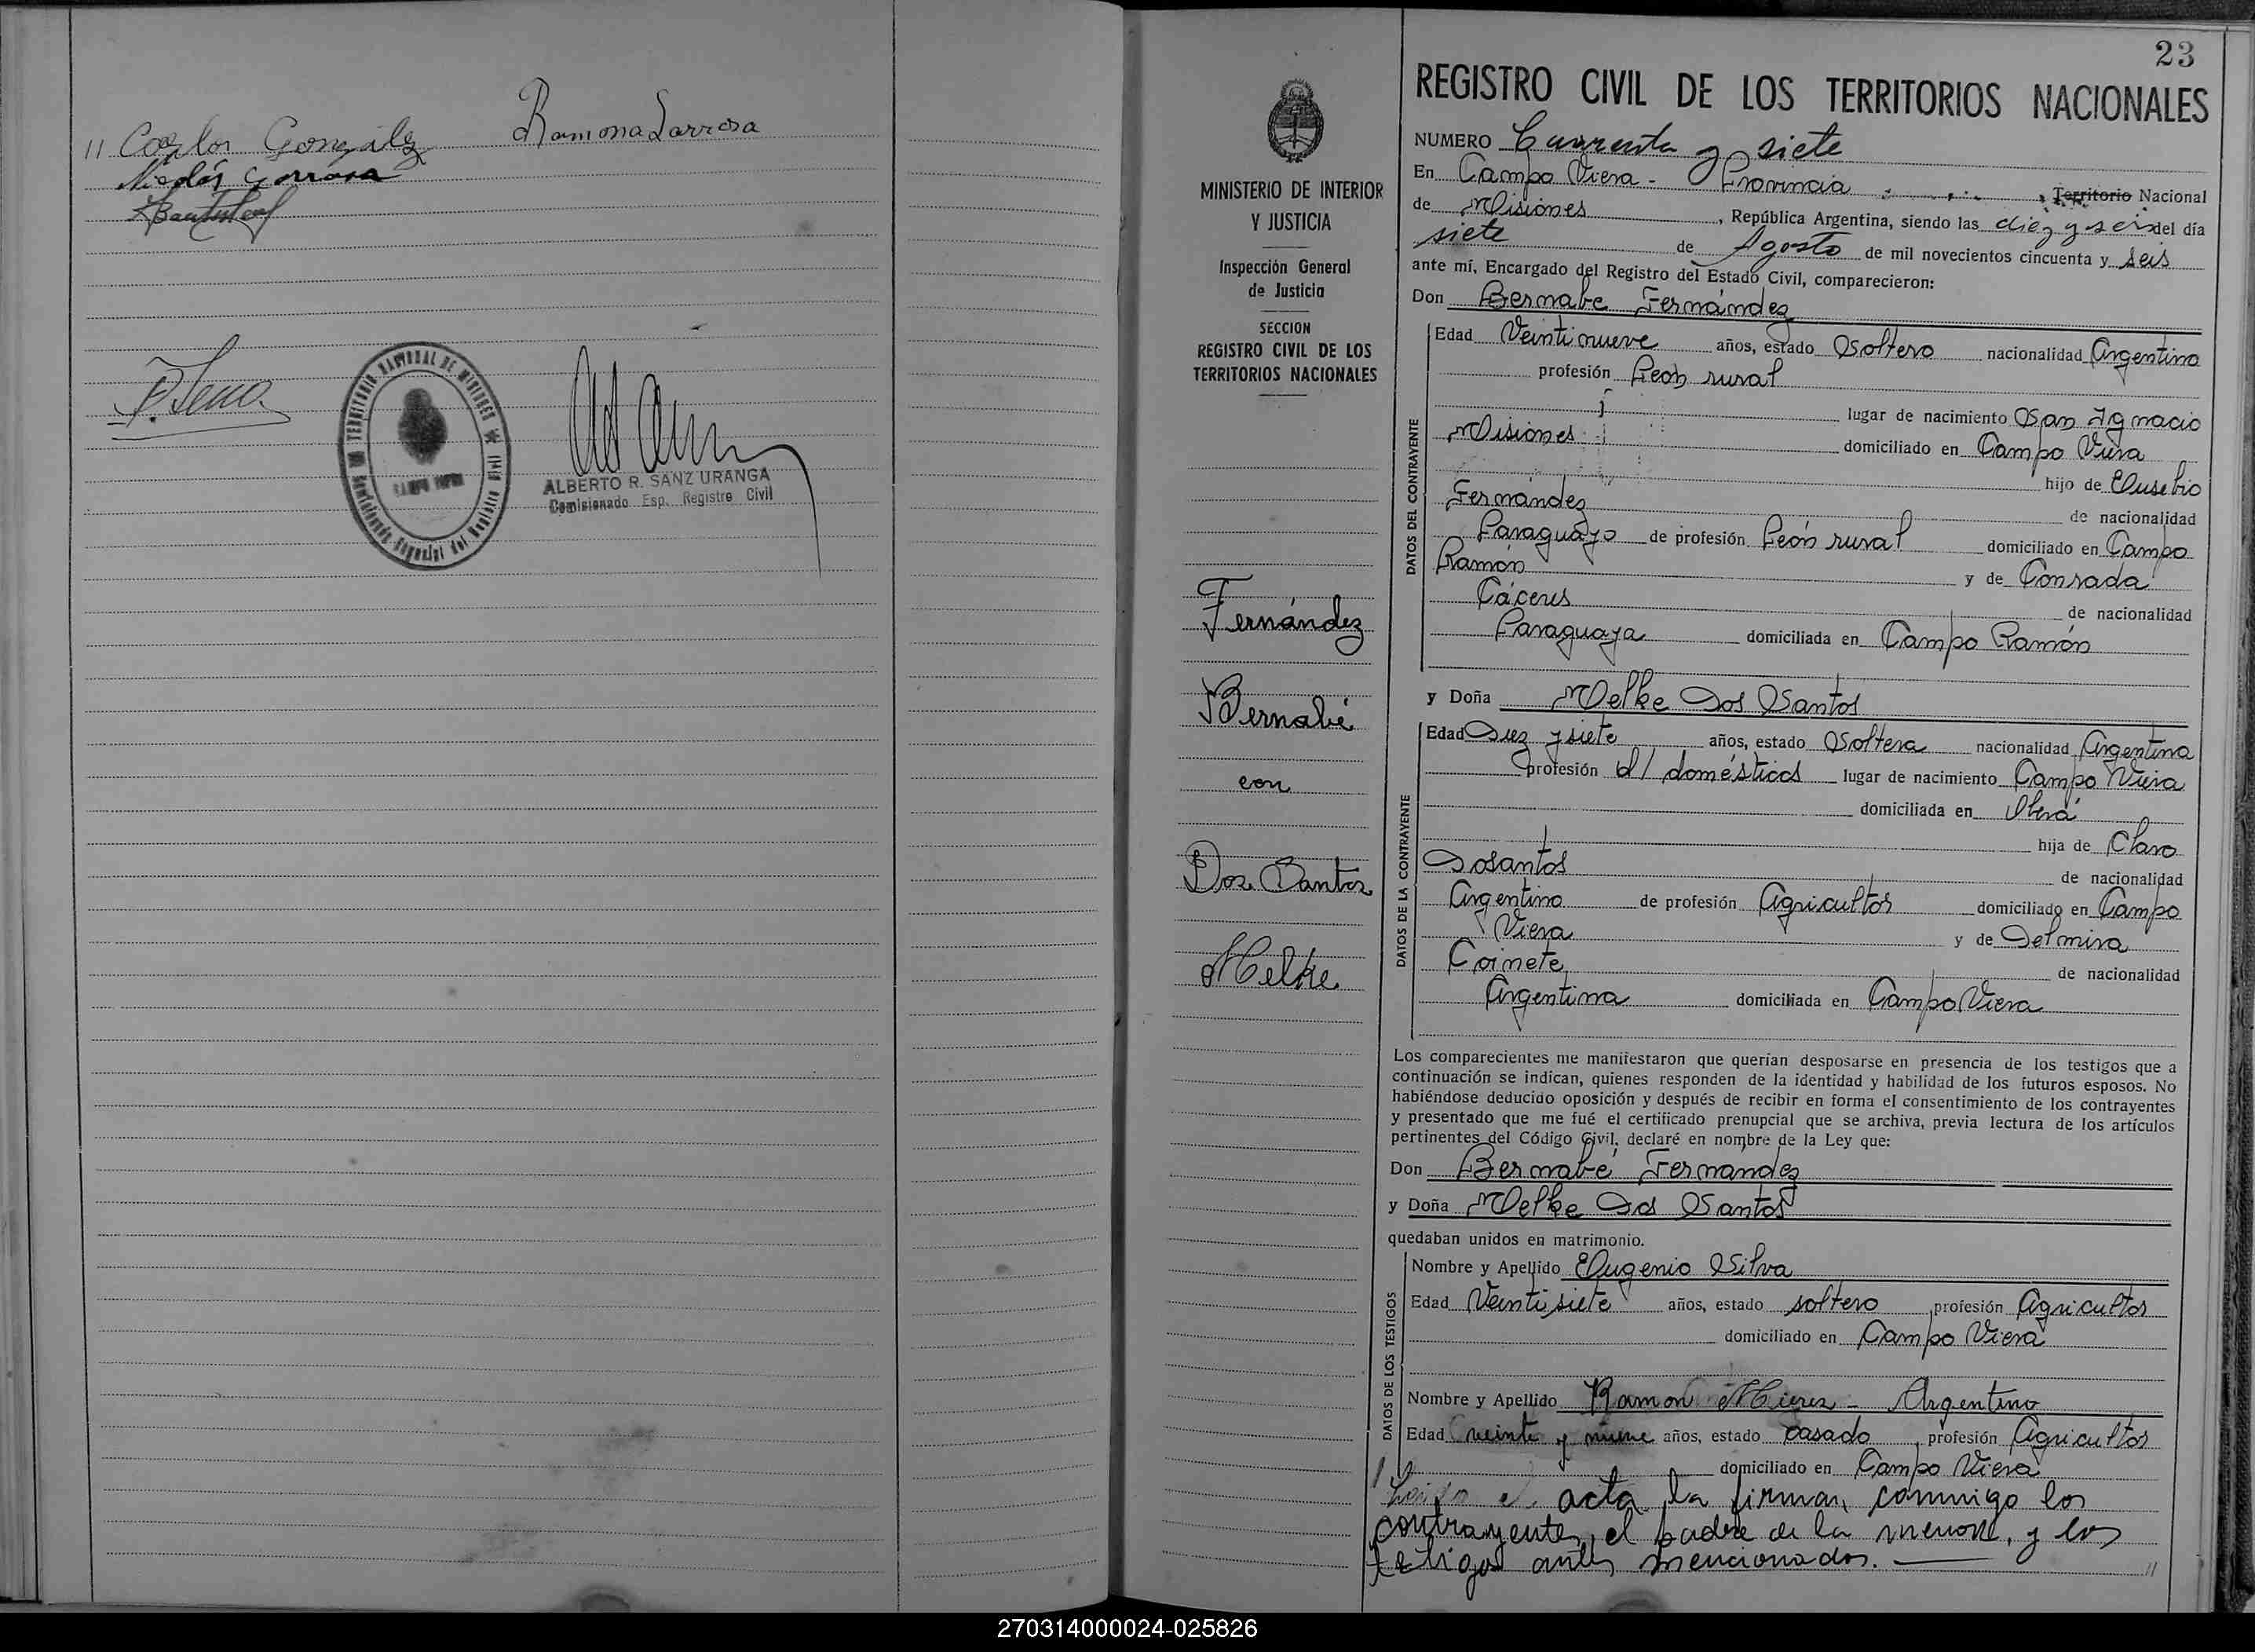 11 Carlos González Ramona Larrosa
Nicolás Larrosa
F. Sena
TERRITORIO NACIONAL DE MISIONES
ALBERTO R. SANZ URANGA
Comisionado Esp. Registro Civil
23
MINISTERIO DE INTERIOR
Y JUSTICIA
Inspección General
de Justicia
SECCION
REGISTRO CIVIL DE LOS
TERRITORIOS NACIONALES
Fernández
Bernabé
con
Dos Santos
Melke
REGISTRO CIVIL DE LOS TERRITORIOS NACIONALES
NUMERO Cuarenta y siete
En Campo Viera - Provincia Territorio Nacional
de Misiones, República Argentina, siendo las diez y seis del día
siete de Agosto de mil novecientos cincuenta y seis
ante mí, Encargado del Registro del Estado Civil, comparecieron:
Don Bernabe Fernández
DATOS DEL CONTRAYENTE
Edad Veintinueve años, estado Soltero nacionalidad Argentino
profesión Peón rural
lugar de nacimiento San Ignacio
Misiones domiciliado en Campo Viera
hijo de Eusebio
Fernández de nacionalidad
Paraguayo de profesión Peón rural domiciliado en Campo
Ramón y de Conrada
Cáceres de nacionalidad
Paraguaya domiciliada en Campo Ramón
y Doña Melke Dos Santos
DATOS DE LA CONTRAYENTE
Edad Diez y siete años, estado Soltera nacionalidad Argentina
profesión d/ domésticos lugar de nacimiento Campo Viera
domiciliada en Oberá
hija de Claro
Dosantos de nacionalidad
Argentino de profesión Agricultor domiciliado en Campo
Viera y de Delmira
Coinete de nacionalidad
Argentina domiciliada en Campo Viera
Los comparecientes me manifestaron que querían desposarse en presencia de los testigos que a
continuación se indican, quienes responden de la identidad y habilidad de los futuros esposos. No
habiéndose deducido oposición y después de recibir en forma el consentimiento de los contrayentes
y presentado que me fué el certificado prenupcial que se archiva, previa lectura de los artículos
pertinentes del Código Civil, declaré en nombre de la Ley que:
Don Bernabé Fernández
y Doña Melke Dos Santos
quedaban unidos en matrimonio.
DATOS DE LOS TESTIGOS
Nombre y Apellido Eugenio Silva
Edad Veintisiete años, estado soltero, profesión Agricultor
domiciliado en Campo Viera
Nombre y Apellido Ramon Mieres - Argentino
Edad veinte y nueve años, estado casado, profesión Agricultor
domiciliado en Campo Viera
acta la firman conmigo los
contrayentes, el padre de la menor, y los
testigos antes mencionados. 11
270314000024-025826